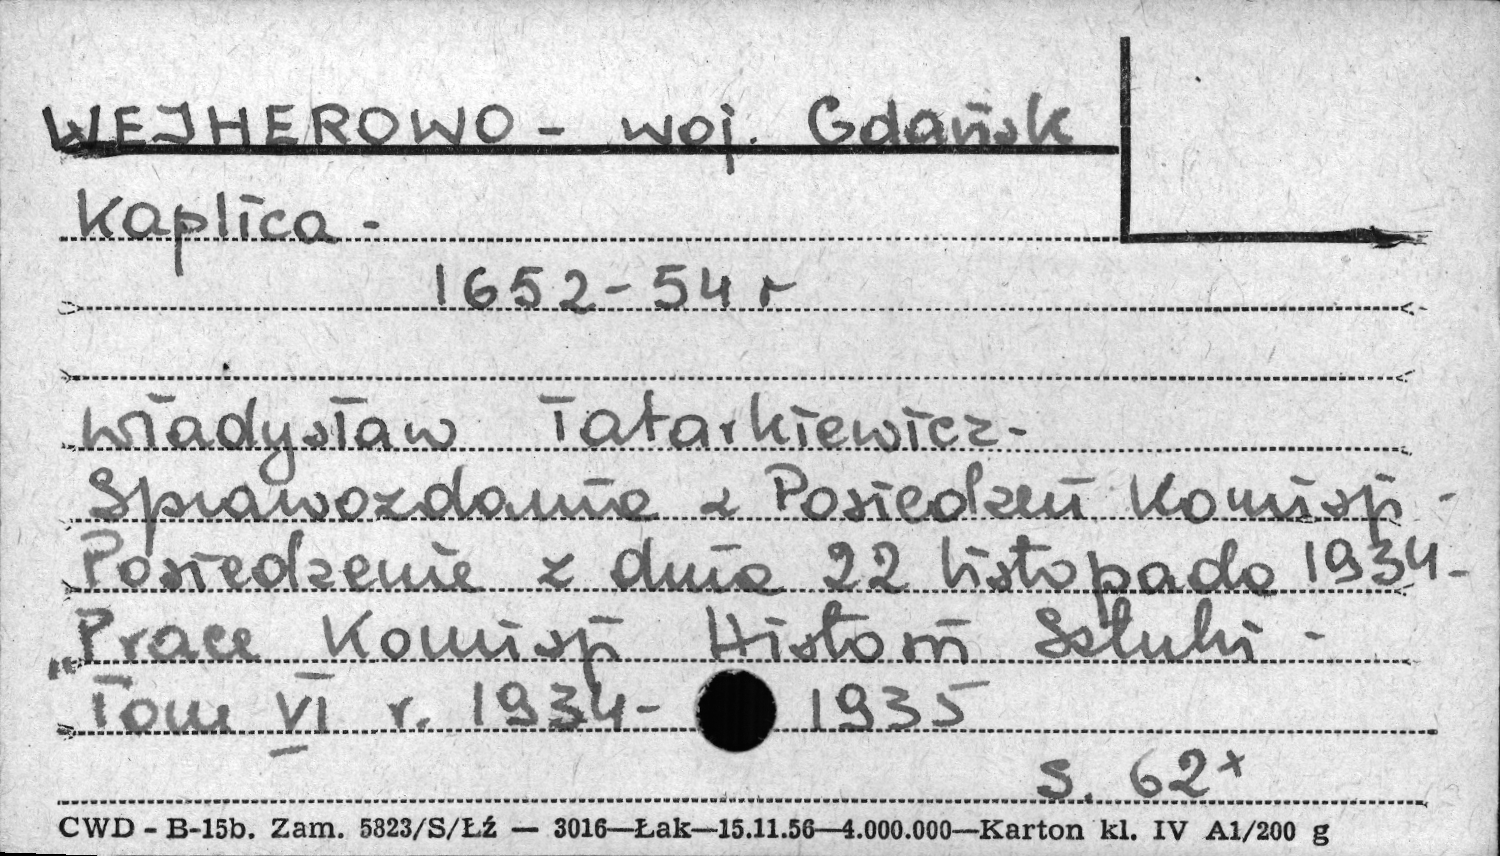 WEJHEROWO - woj. Gdańsk
Kaplica -
1652-54 r
Władysław Tatarkiewicz-
Sprawozdanie z Posiedzeń Komisji -
Posiedzenie z dnia 22 listopada 1934-
„Prace Komisji Historii Sztuki -
Tom VI r. 1934- 1935
S. 62x
CWD - B-15b. Zam. 5823/S/Łź — 3016—Łak—15.11.56—4.000.000—Karton kl. IV A1/200 g